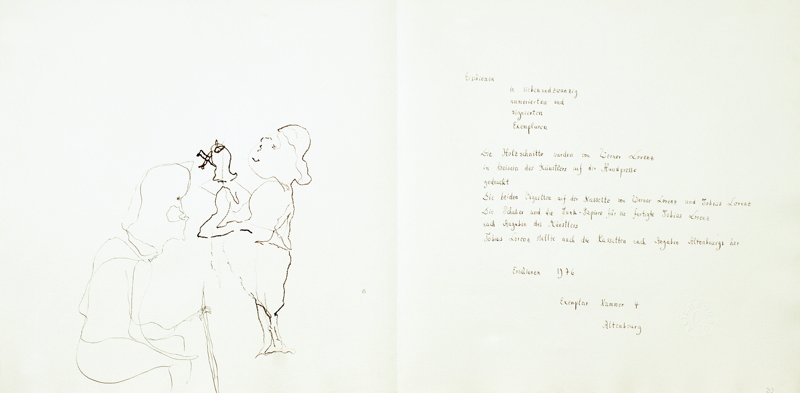 Erschienen
in siebenundzwanzig
numerierten und
signierten
Exemplaren
Die Holzschnitte wurden von Werner Lorenz
im Beisein des Künstlers auf der Handpresse
gedruckt
Die beiden Vignetten auf der Kassette von Werner Lorenz und Tobias Lorenz
Die Schuber und die
fertigte Tobias Lorenz
nach Angaben des Künstlers
Tobias Lorenz stellte auch die Kassetten nach Angaben Altenbourgs her
Erschienen 1976
Exemplar Nummer 4
Altenbourg